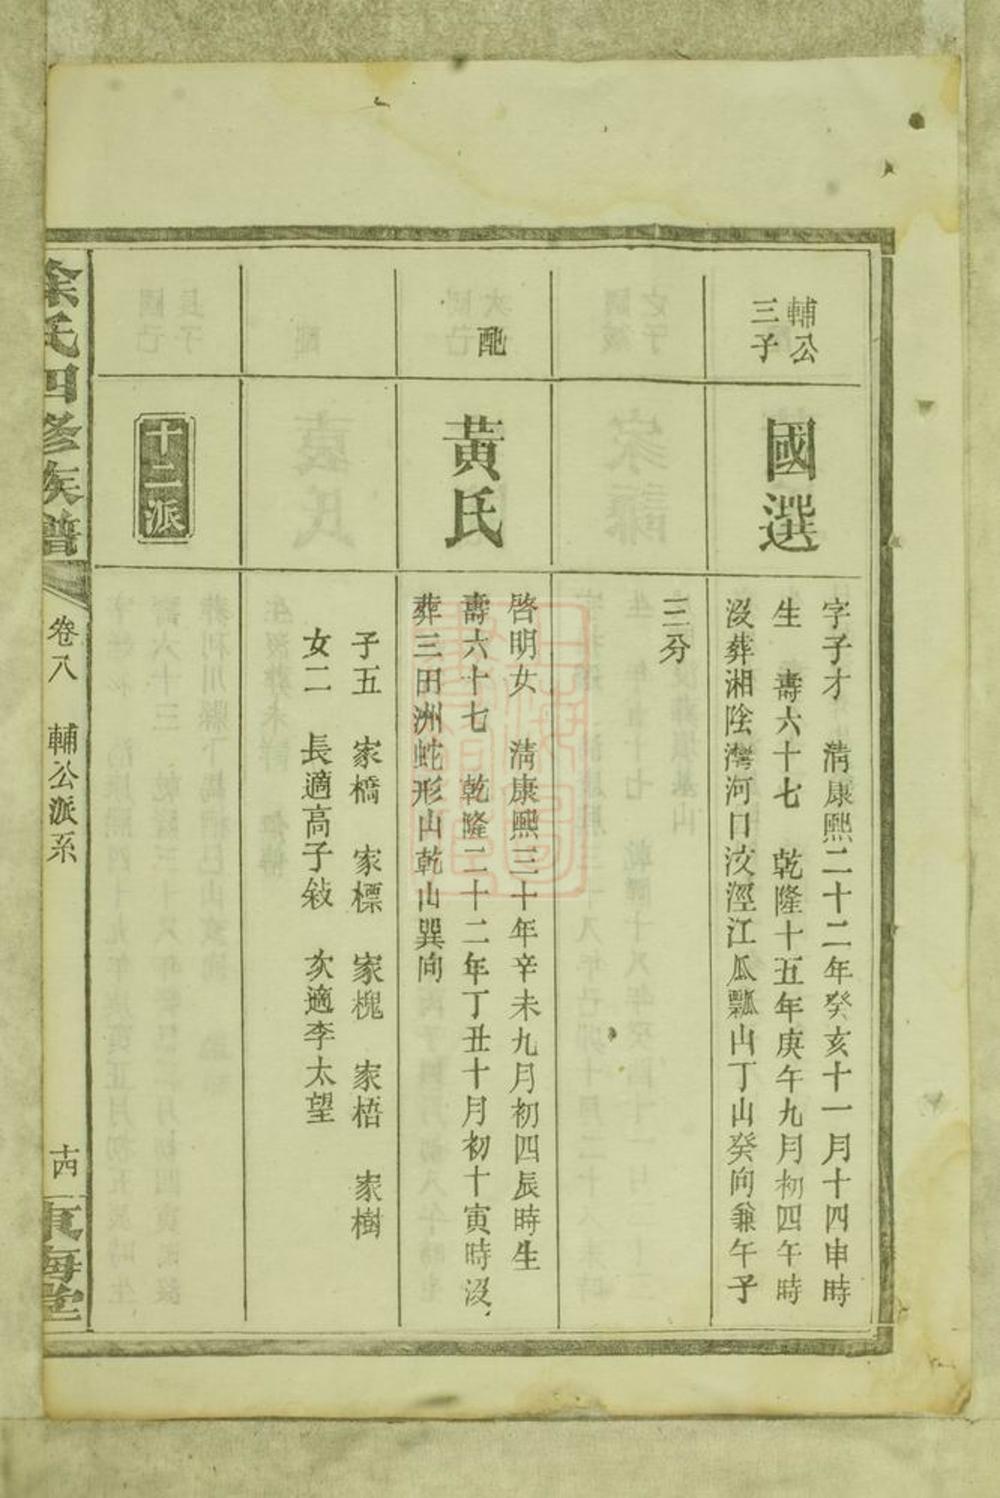 輔公
三子
國選
字子才　清康熙二十二年癸亥十一月十四申時
生　壽六十七　乾隆十五年庚午九月初四午時
沒葬湘陰灣河口汶涇江瓜瓢山丁山癸向兼午子
三分
配
黃氏
啓明女　清康熙三十年辛未九月初四辰時生
壽六十七　乾隆二十二年丁丑十月初十寅時沒
葬三田洲蛇形山乾山巽向
子五　家橋　家標　家槐　家梧　家樹
女二　長適高子敍　次適李太望
十二派
徐氏四修族譜
卷八　輔公派系
東海堂